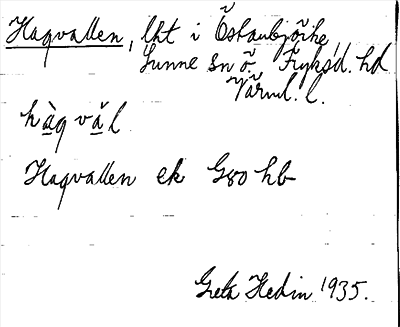 Hagvallen, lht i Östanbjörke
Sunne sn ö. Fryksd. hd
Värml. l.
hàgvăl
Hagvallen ek G80 hb
Greta Hedin 1935.